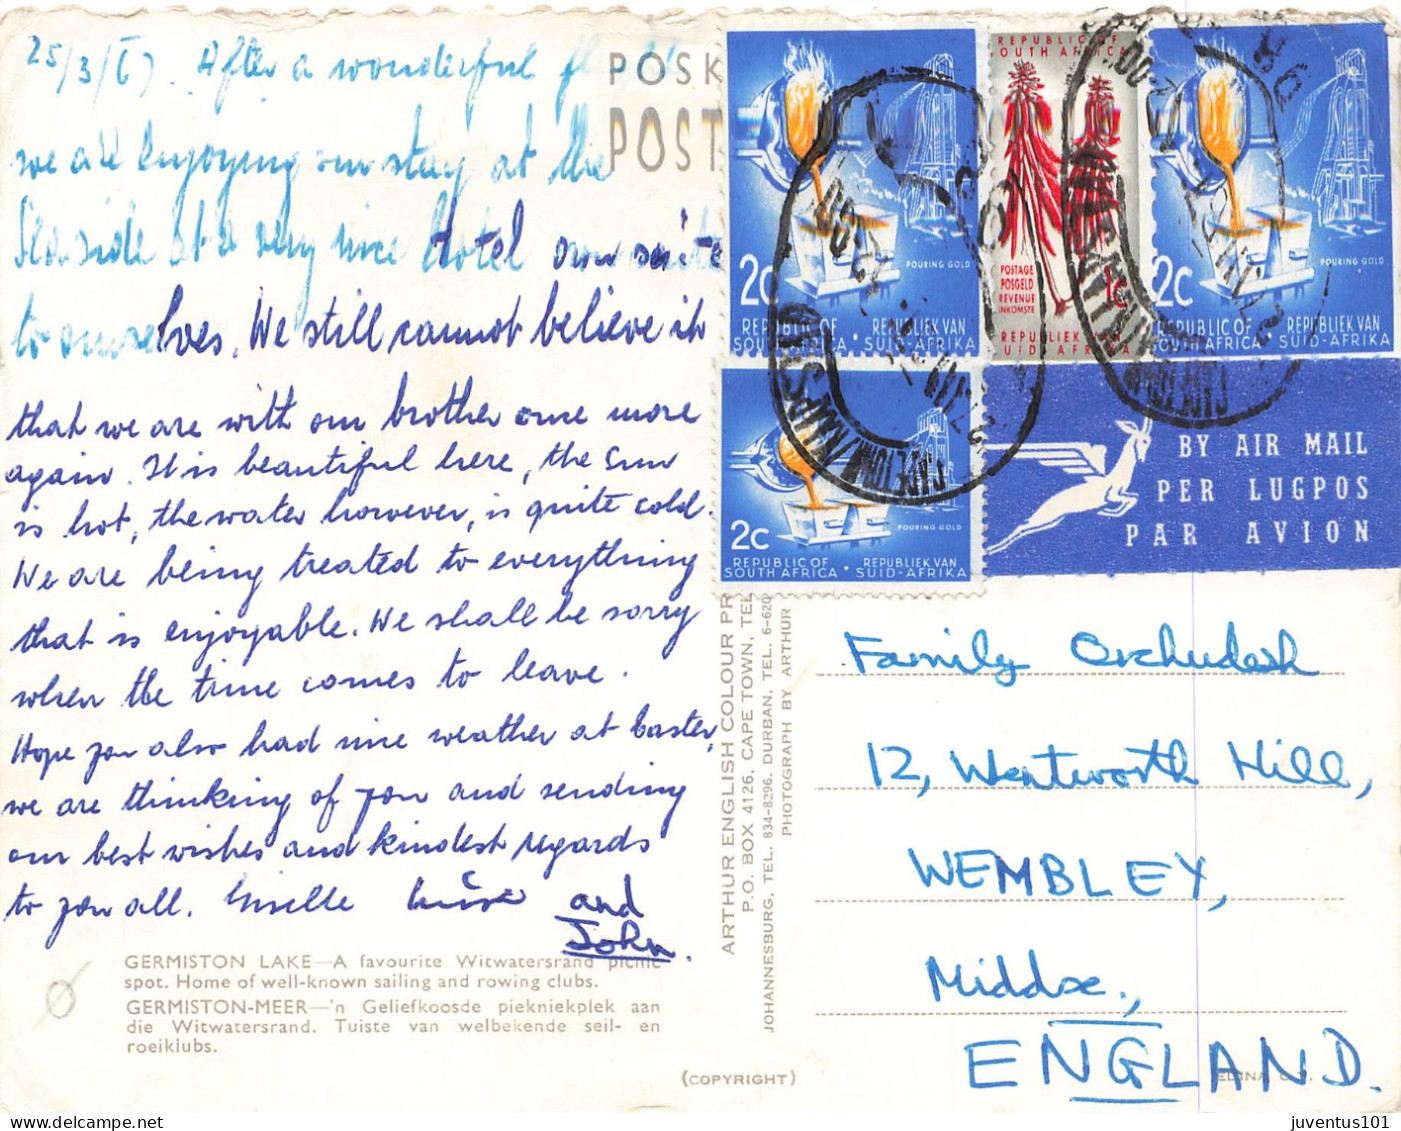 25/3/67. After a wonderful
we are enjoying our stay at the
Seaside at a very nice Hotel own suite
to ourselves. We still cannot believe it
that we are with our brother once more
again. It is beautiful here, the sun
is hot, the water however, is quite cold.
We are being treated to everything
that is enjoyable. We shall be sorry
when the time comes to leave.
Hope you also had nice weather at Easter,
we are thinking of you and sending
our best wishes and kindest regards
to you all. Giselle and
John.
GERMISTON LAKE—A favourite Witwatersrand picnic
spot. Home of well-known sailing and rowing clubs.
GERMISTON-MEER—'n Geliefkoosde piekniekplek aan
die Witwatersrand. Tuiste van welbekende seil- en
roeiklubs.
POSK
POST
ARTHUR ENGLISH COLOUR PR
P.O. BOX 4126, CAPE TOWN, TEL
JOHANNESBURG, TEL. 834-8296. DURBAN, TEL. 6-620
PHOTOGRAPH BY ARTHUR
(COPYRIGHT)
2c
POURING GOLD
REPUBLIC OF SOUTH AFRICA · REPUBLIEK VAN SUID-AFRIKA
REPUBLIC OF
SOUTH AFRICA
POSTAGE
POSGELD
REVENUE
INKOMSTE
1c
REPUBLIEK VAN
SUID-AFRIKA
2c
POURING GOLD
REPUBLIC OF SOUTH AFRICA · REPUBLIEK VAN SUID-AFRIKA
2c
POURING GOLD
REPUBLIC OF SOUTH AFRICA · REPUBLIEK VAN SUID-AFRIKA
BY AIR MAIL
PER LUGPOS
PAR AVION
Family
12, Wentworth Hill,
WEMBLEY,
Middx.,
ENGLAND.
juventus101